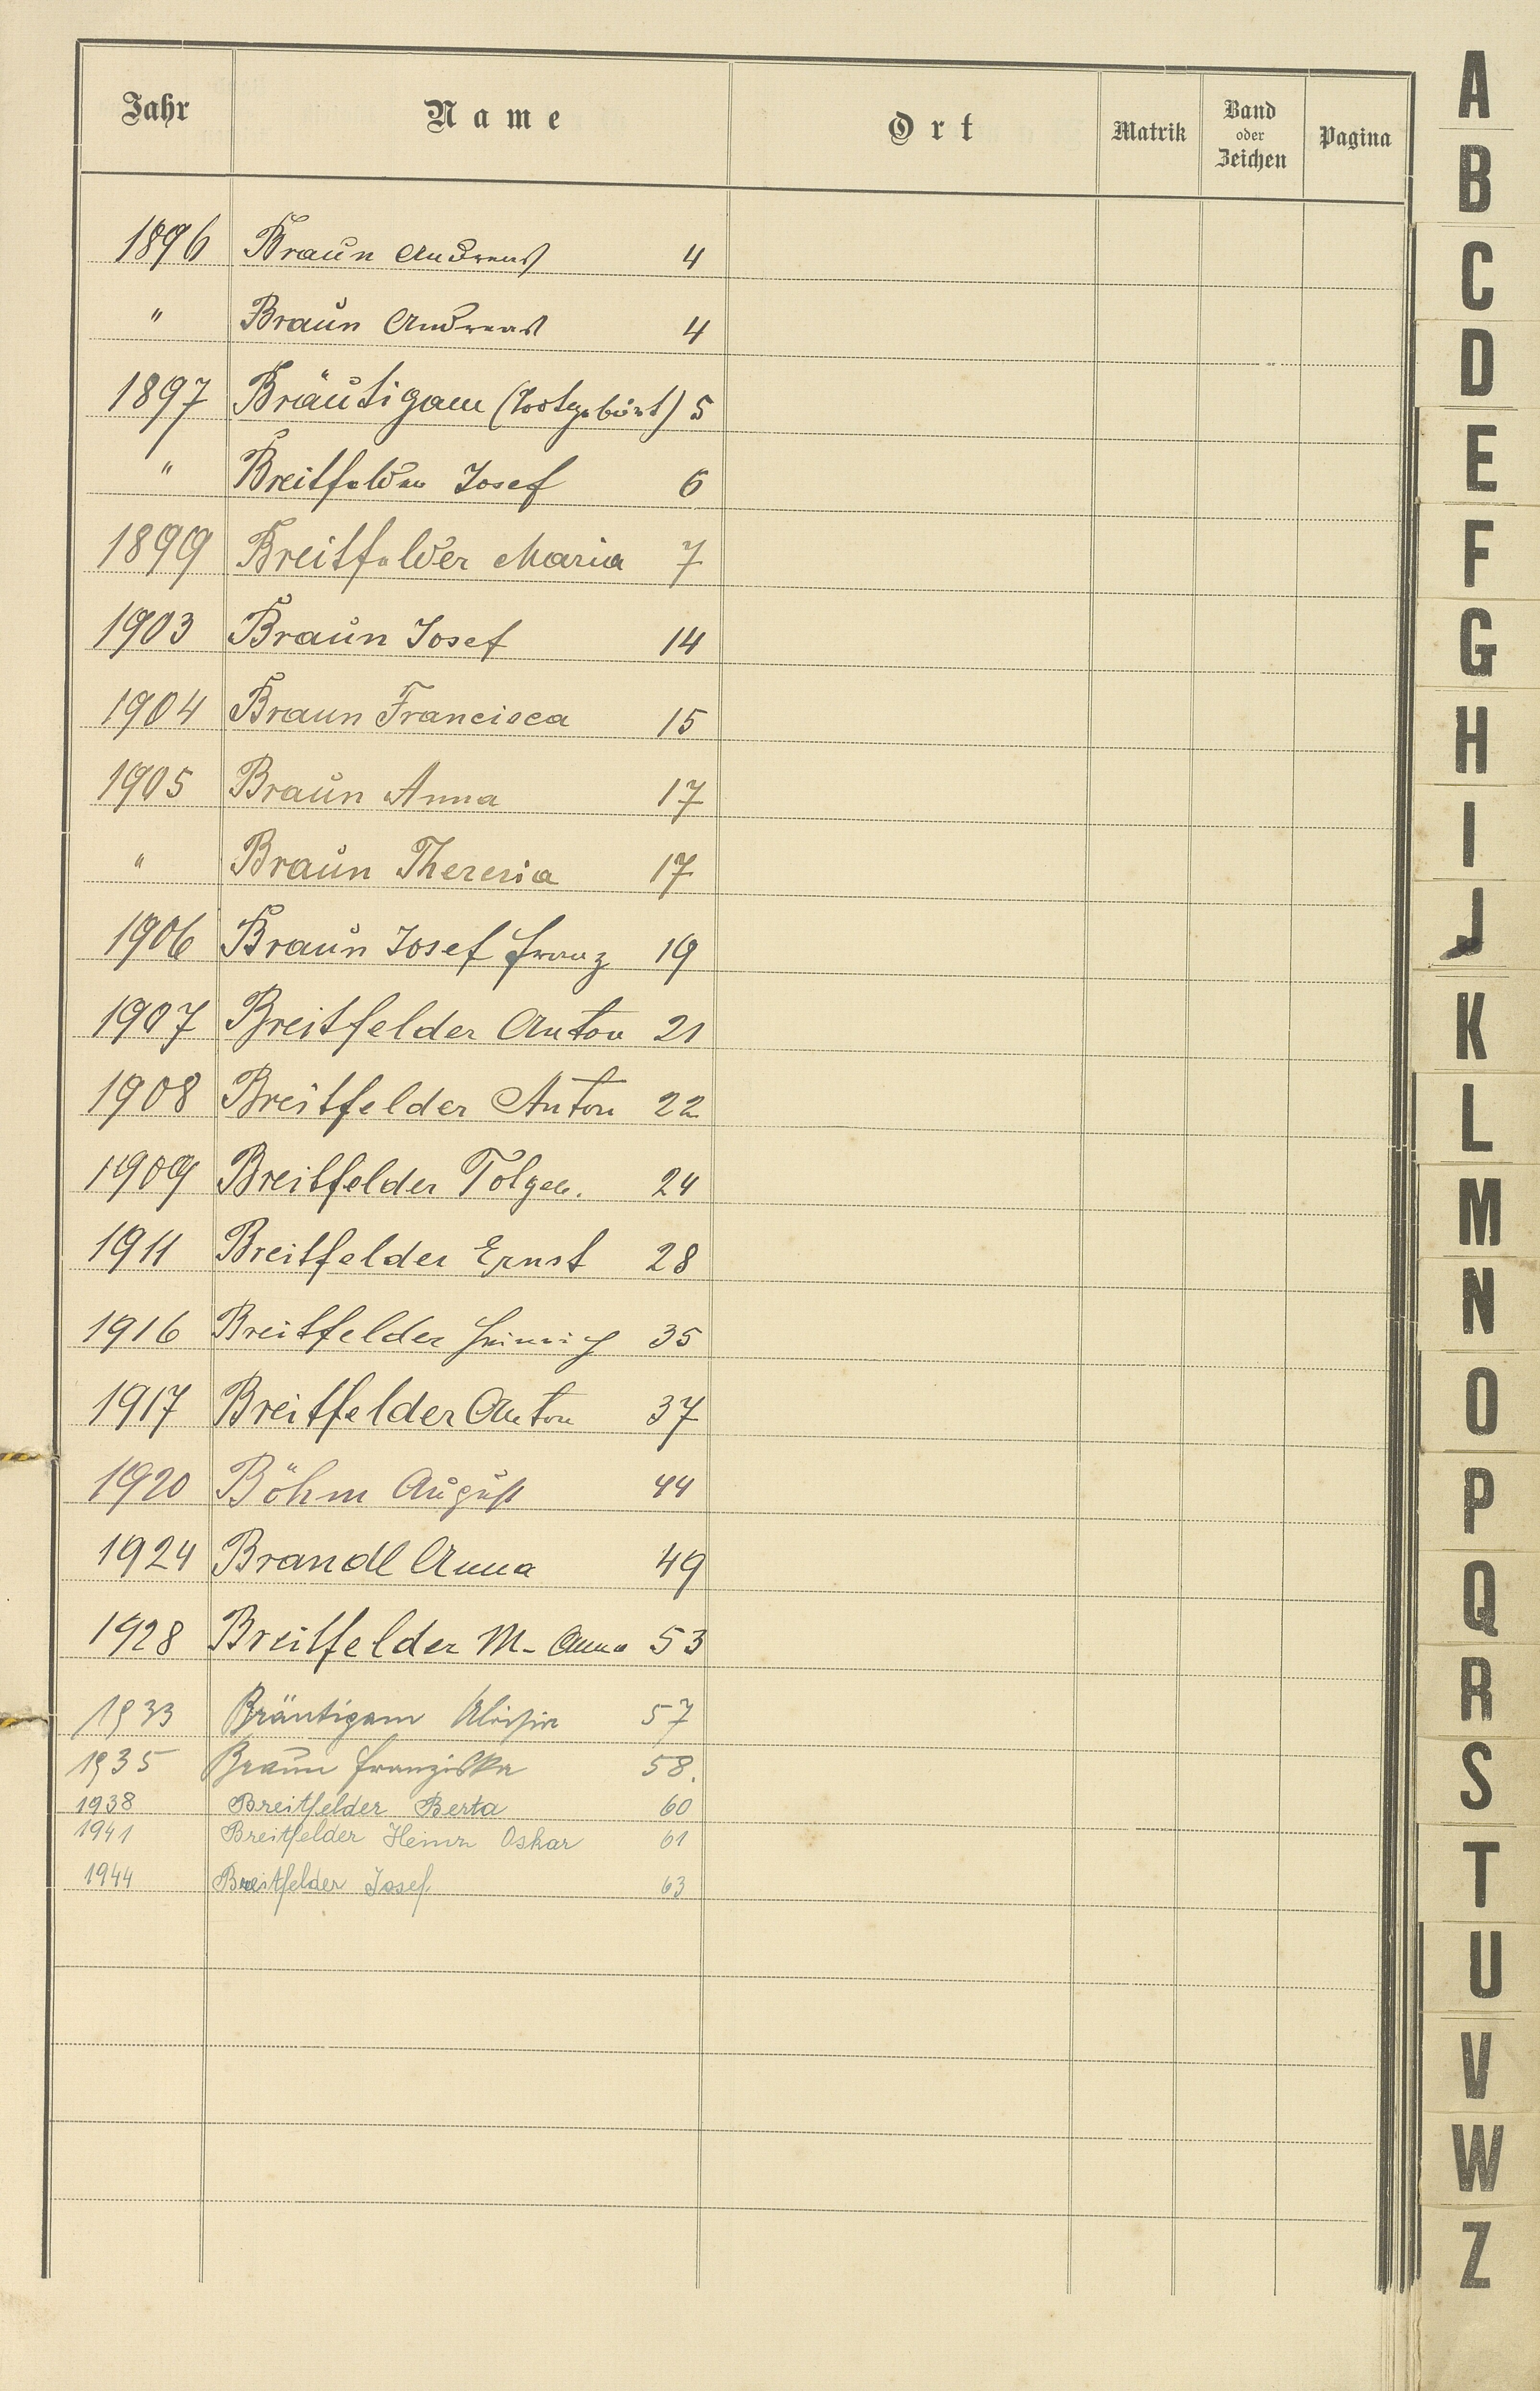 Jahr Name Ort Matrik Band oder Zeichen Pagina
1896 Braun Andreas 4
" Braun Andreas 4
1897 Bräutigam (Todtgeburt) 5
" Breitfelder Josef 6
1899 Breitfelder Maria 7
1903 Braun Josef 14
1904 Braun Francisca 15
1905 Braun Anna 17
" Braun Theresia 17
1906 Braun Josef Franz 19
1907 Breitfelder Anton 21
1908 Breitfelder Anton 22
1909 Breitfelder 24
1911 Breitfelder Ernst 28
1916 Breitfelder Heinrich 35
1917 Breitfelder Anton 37
1920 Böhm August 44
1924 Brandl Anna 49
1928 Breitfelder M. Anna 53
1933 Bräutigam Aloisia 57
1935 Braun Franziska 58.
1938 Breitfelder Berta 60
1941 Breitfelder Oskar 61
1944 Breitfelder Josef 63
A
B
C
D
E
F
G
H
I
J
K
L
M
N
O
P
Q
R
S
T
U
V
W
Z